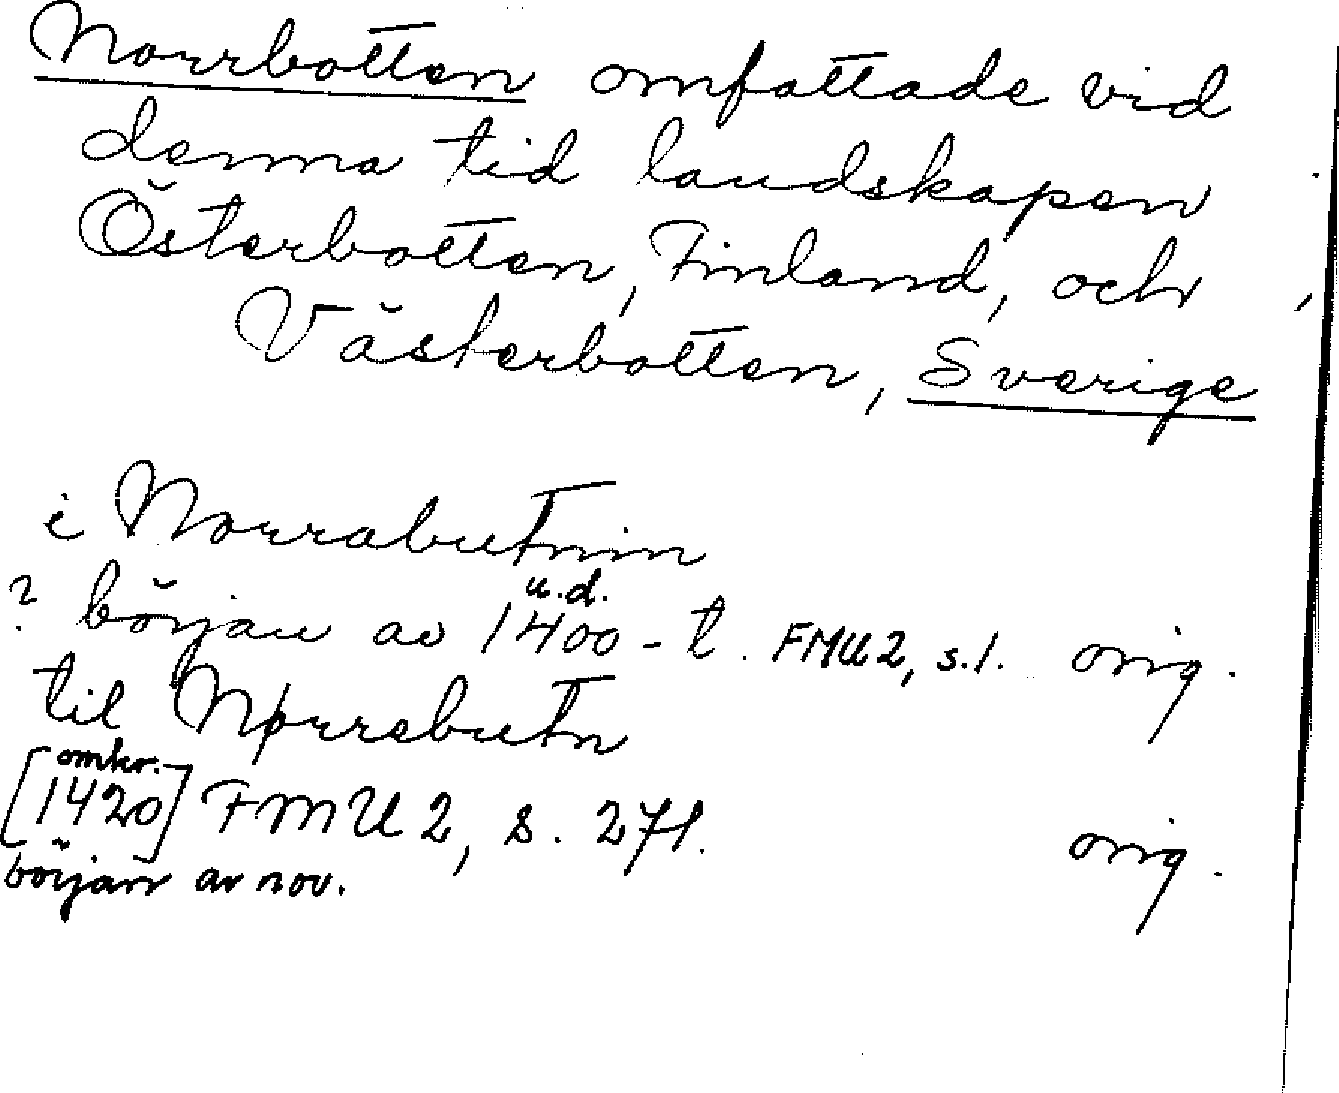 Norrbotten omfattade vid
denna tid landskapen
Österbotten, Finland, och
Västerbotten, Sverige
i Norrabutnin
u.d.
? början av 1400-t. FMU 2, s. 1. orig.
til Nørrebutn
omkr.
[1420] FMU 2, s. 271. orig.
början av nov.